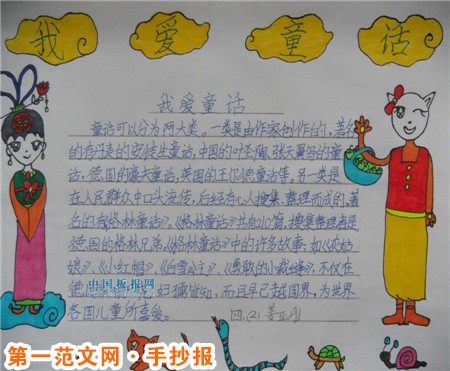 我爱童话
我爱童话
童话可以分为两大类。一类是由作家创作的,著名
的有丹麦的安徒生童话,中国的叶圣陶、张天翼写的童
话,德国的豪夫童话,英国的王尔德童话等。另一类是
在人民群众中口头流传,后经有心人搜集、整理而成的,著
名的有《格林童话》。《格林童话》共有 搜集整理者是
德国的格林兄弟。《格林童话》中的许多故事,如《灰姑
娘》、《小红帽》、《白雪公主》、《勇敢的小裁缝》,不仅在
德国 妇孺皆知,而且早已越国界,为世界
各国儿童所喜爱。
四.(2) 姜
中国板报网
第一范文网·手抄报